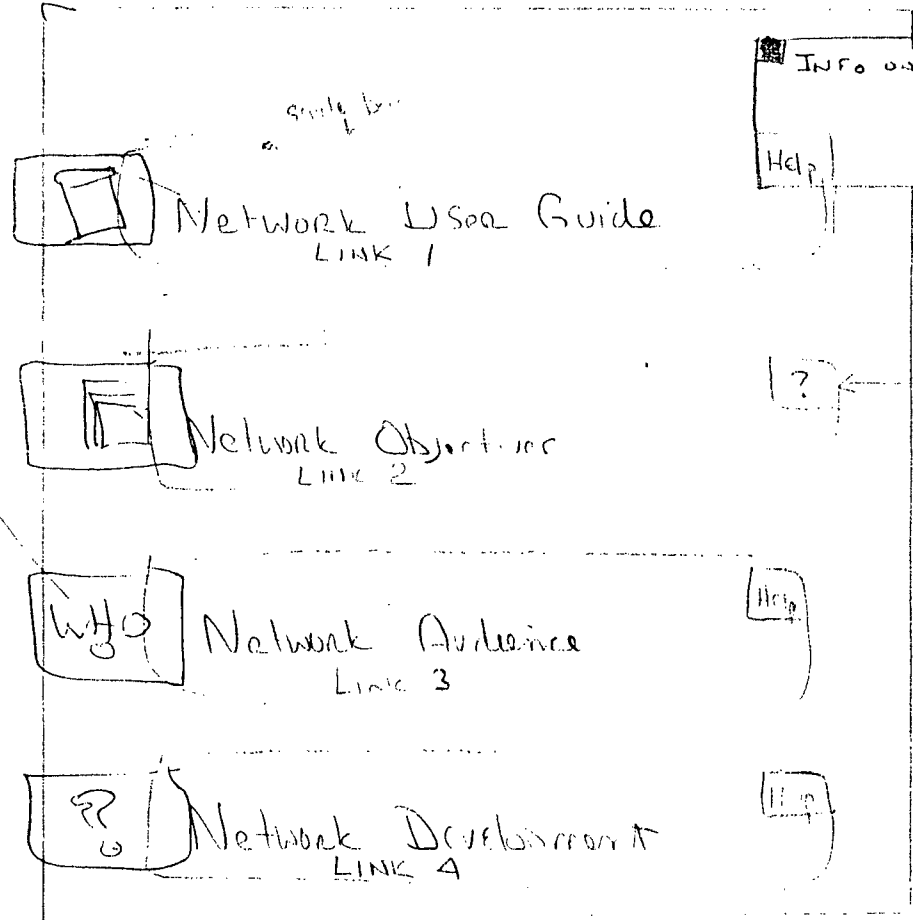 INFO
Help
Network User Guide
LINK 1
?
Network Objectives
LINK 2
WHO
Help
Network Audience
LINK 3
?
Help
Network Development
LINK 4